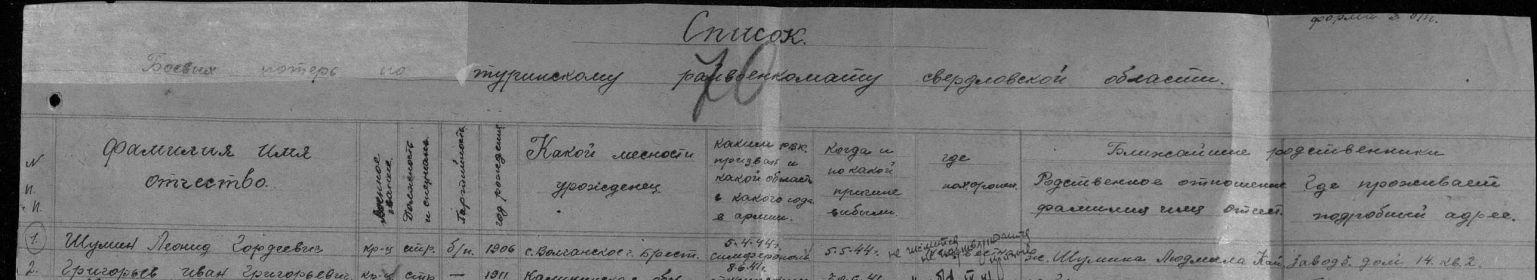 форма 2 б/п.
Список.
Боевых потерь по туринскому райвоенкомату свердловской области.
70
N п. п.
фамилия имя отчество.
Военное звание
Должность и специальн.
Партийность
год рождения
Какой месности урожденец
каким рвк призван и какой области с какого года в армии.
когда и по какой причине выбыли.
где похоронен.
Ближайшие родственники
Родственное отношение фамилия имя отчест.
Где проживает подробный адрес.
1. Шумин Леонид Гордеевич кр-ц стр. б/п. 1906 5-4-44г. 5-5-44г. не числится Шумина Людмила завод 5. дом 14. кв 2.
2. Григорьев Иван Григорьевич кр-ц стр — 1911